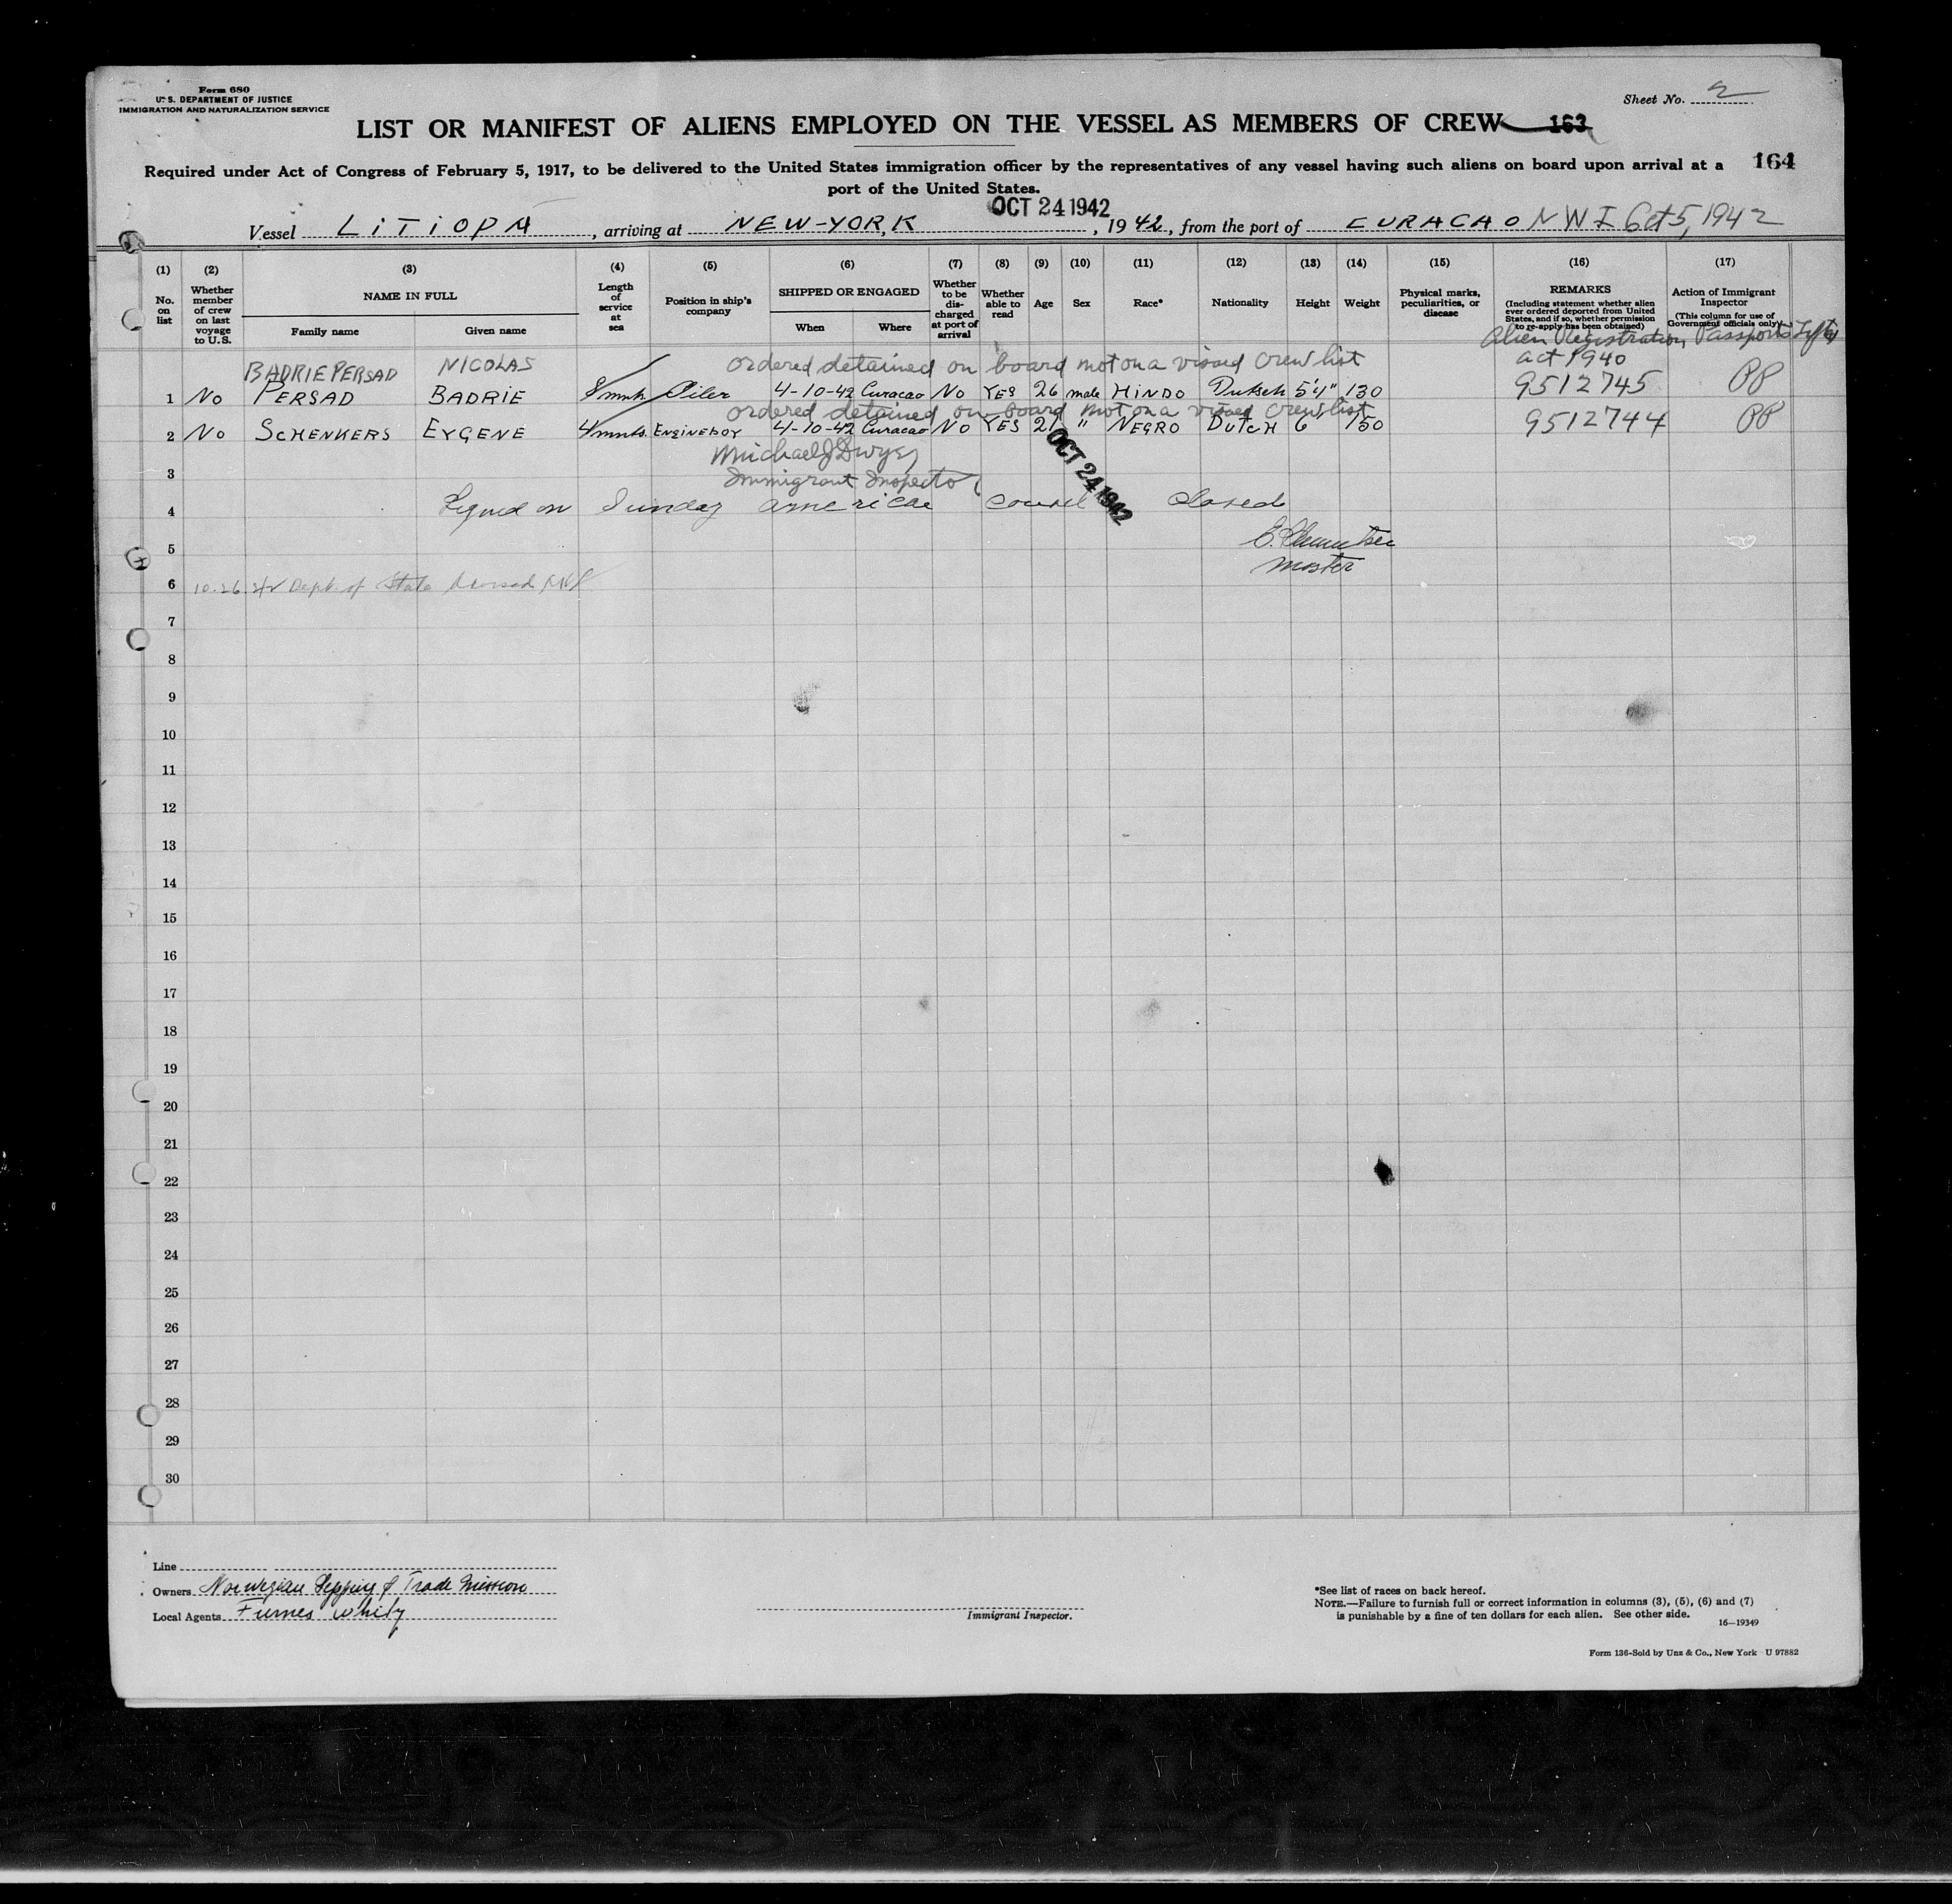 Form 680
U. S. DEPARTMENT OF JUSTICE
IMMIGRATION AND NATURALIZATION SERVICE
Sheet No. 2
LIST OR MANIFEST OF ALIENS EMPLOYED ON THE VESSEL AS MEMBERS OF CREW 163
Required under Act of Congress of February 5, 1917, to be delivered to the United States immigration officer by the representatives of any vessel having such aliens on board upon arrival at a 164
port of the United States.
OCT 24 1942
Vessel LiTiOPA, arriving at NEW-YORK, 1942, from the port of CURACAO N W I Oct 5, 1942
(1) (2) (3) (4) (5) (6) (7) (8) (9) (10) (11) (12) (13) (14) (15) (16) (17)
No. on list
Whether member of crew on last voyage to U.S.
NAME IN FULL
Family name
Given name
Length of service at sea
Position in ship's company
SHIPPED OR ENGAGED
When
Where
Whether to be discharged at port of arrival
Whether able to read
Age
Sex
Race*
Nationality
Height
Weight
Physical marks, peculiarities, or disease
REMARKS
(Including statement whether alien ever ordered deported from United States, and if so, whether permission to re-apply has been obtained)
Action of Immigrant Inspector
(This column for use of Government officials only)
Alien Registration Passports
act 1940
BADRIE PERSAD NICOLAS ordered detained on board not on a visaed crew list
1 No PERSAD BADRIE 8 mnth Oiler 4-10-42 Curacao No YES 26 male HINDO Dutsch 5'4" 130 9512745 PP
ordered detained on board not on a visaed crew list
2 No SCHENKERS EYGENE 4 mnts. ENGINEBOY 4-10-42 Curacao No YES 21 " NEGRO DUTCH 6' 150 9512744 PP
Michael J Dwyer
3 Immigrant Inspector
OCT 24 1942
4 Signed on Sunday american consul closed
5
Master
6 10.26.42 Dept. of State
7
8
9
10
11
12
13
14
15
16
17
18
19
20
21
22
23
24
25
26
27
28
29
30
Line
Owners Norwegian Shipping & Trade Mission
Local Agents Furnes Whity
Immigrant Inspector.
*See list of races on back hereof.
NOTE.—Failure to furnish full or correct information in columns (3), (5), (6) and (7)
is punishable by a fine of ten dollars for each alien. See other side.
16—19349
Form 136-Sold by Unz & Co., New York U 97882